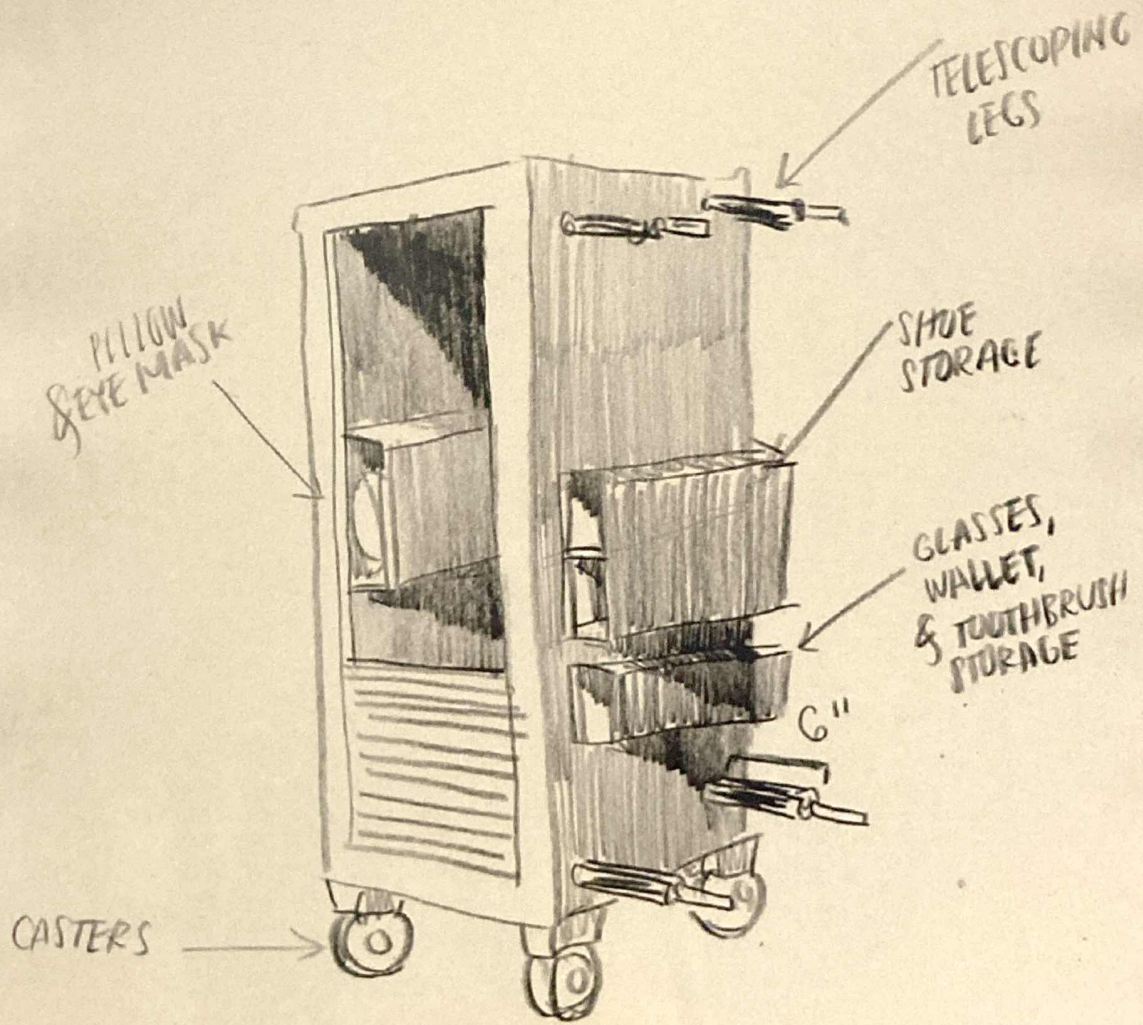 TELESCOPING
LEGS
PILLOW
& EYE MASK
SHOE
STORAGE
GLASSES,
WALLET,
& TOOTHBRUSH
STORAGE
6"
CASTERS